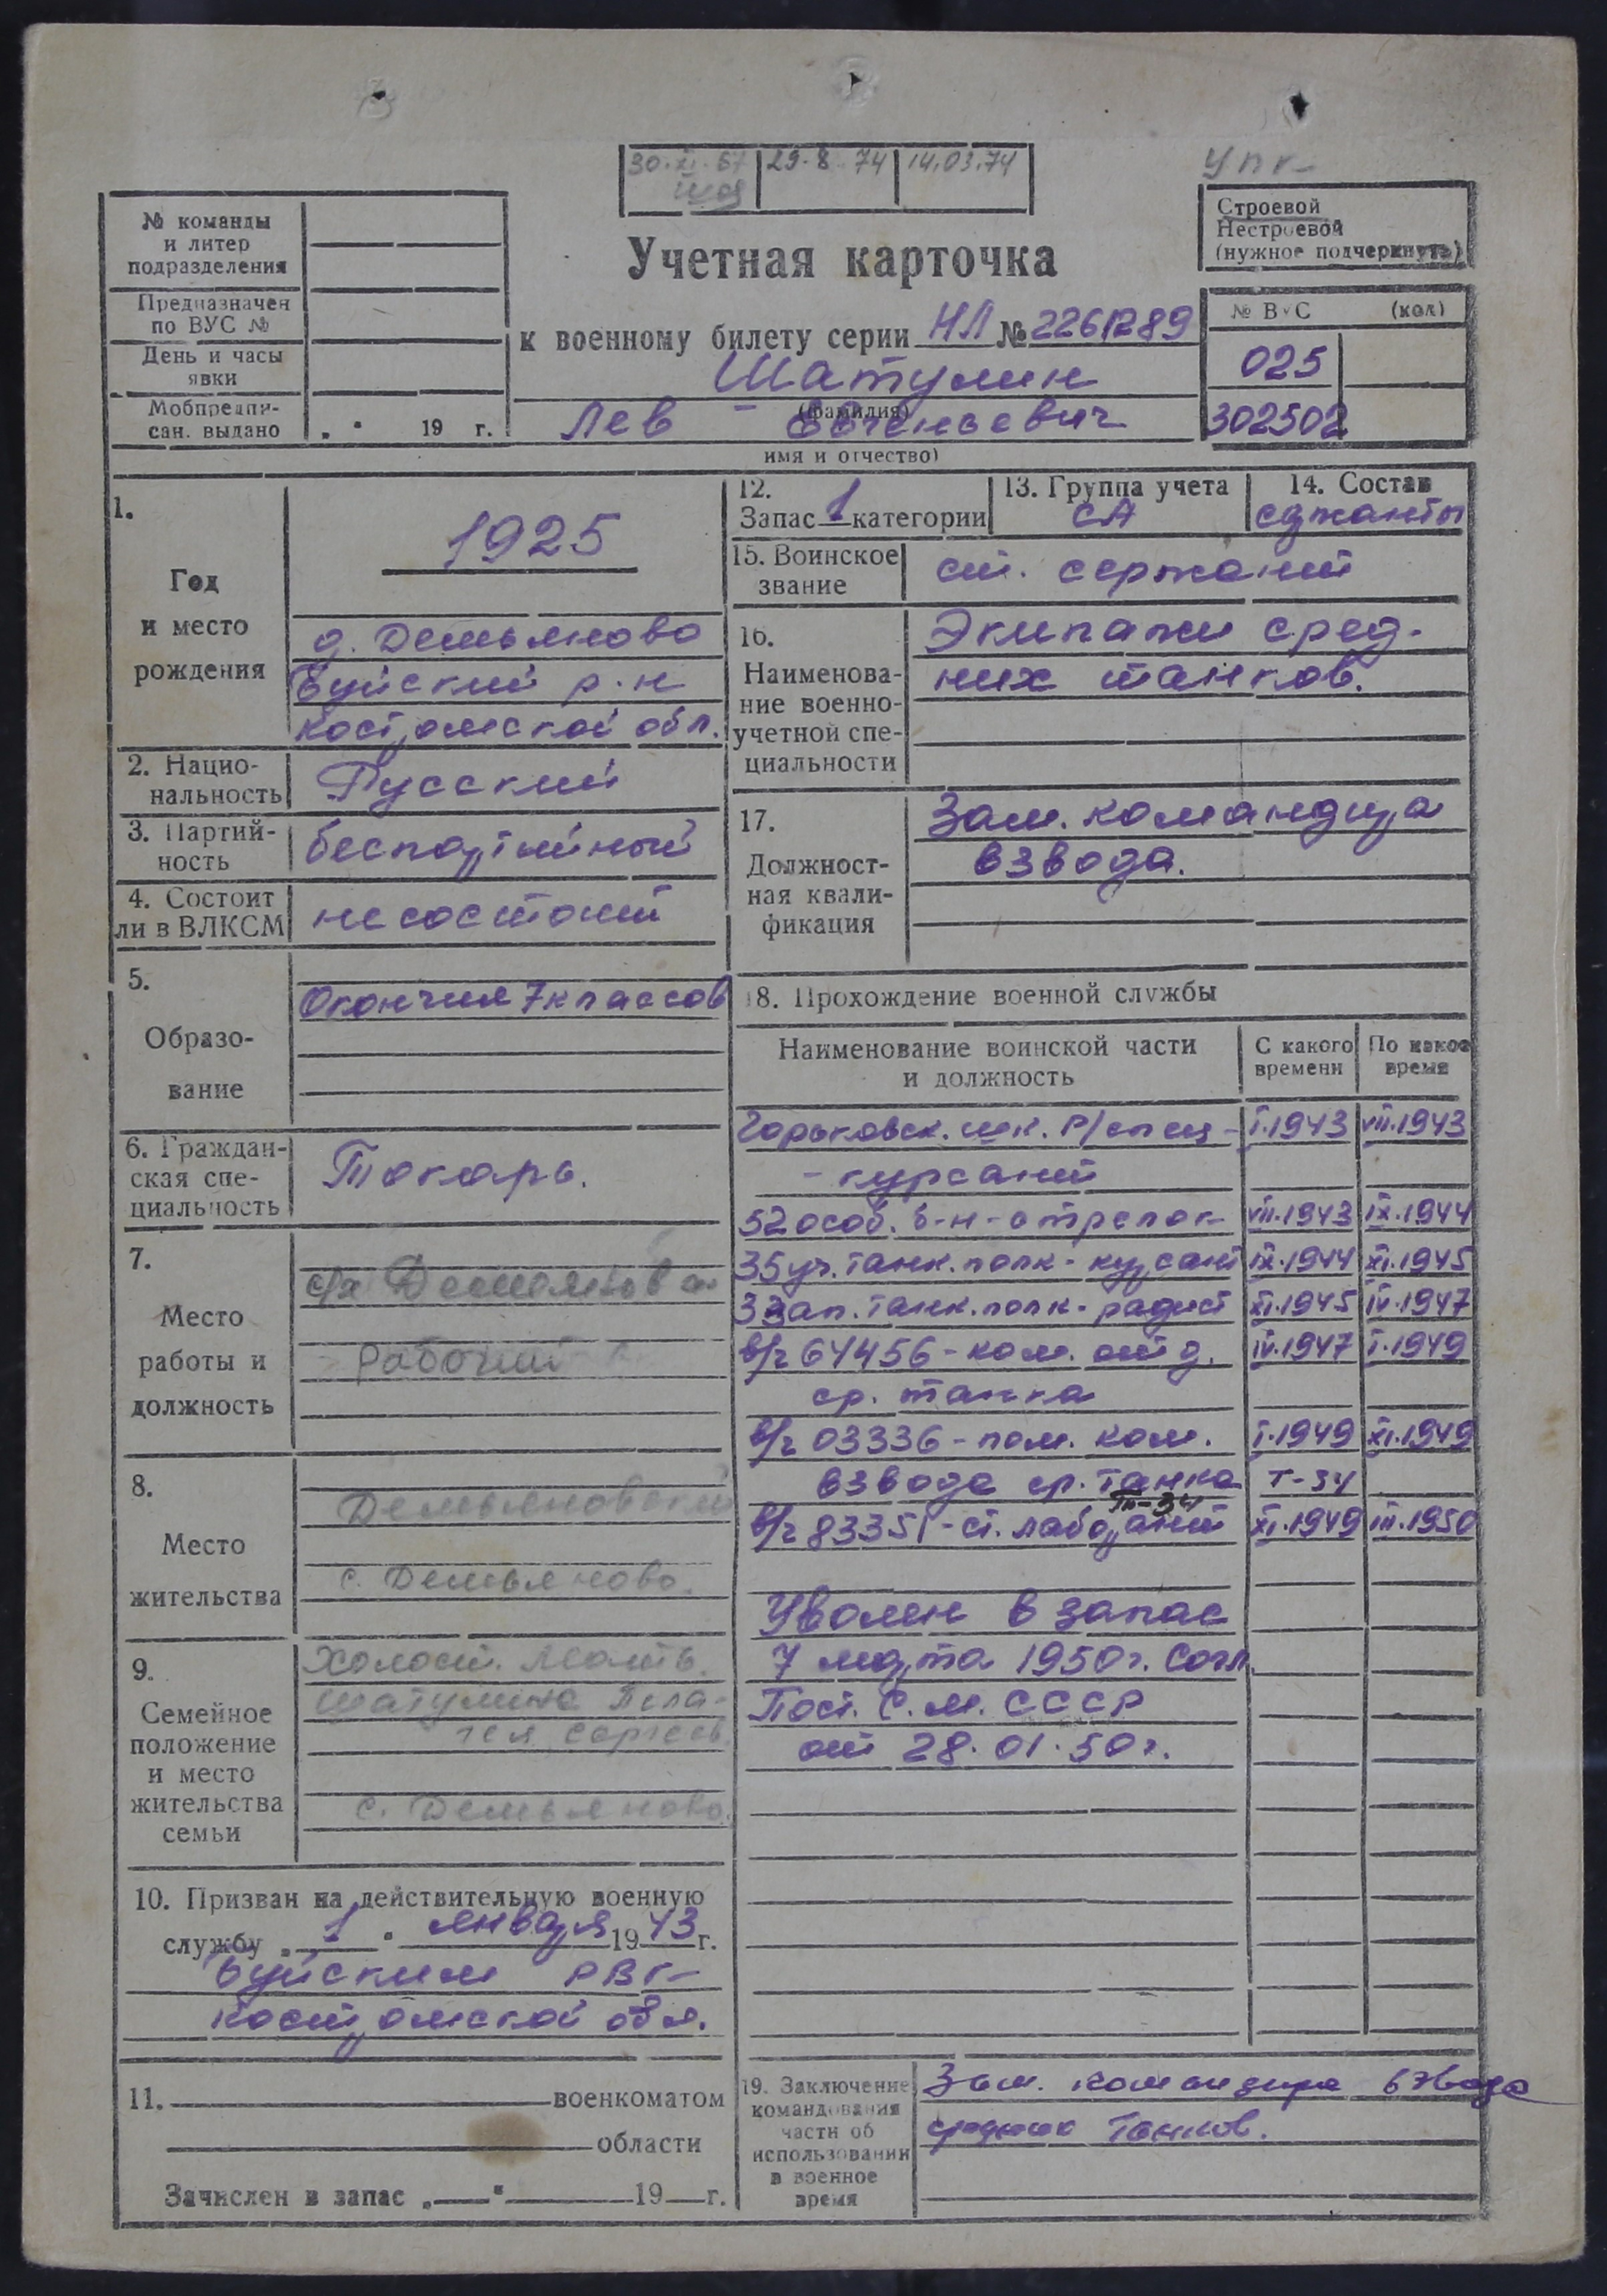 30.XI.67 29.8.74 14.03.74
УПК
№ команды
и литер
подразделения
Предназначен
по ВУС №
День и часы
явки
Мобпредпи-
сан. выдано „ " 19 г.
Строевой
Нестроевой
(нужное подчеркнуть)
Учетная карточка
к военному билету серии НЛ № 2261289
Шатулин
(фамилия)
Лев Евгеньевич
имя и отчество)
№ ВУС (код)
025
302502
1.
Год
и место
рождения
1925
д. Демьяново
Буйский р-н
Костромской обл.
2. Нацио-
нальность
Русский
3. Партий-
ность
беспартийный
4. Состоит
ли в ВЛКСМ
не состоит
5.
Образо-
вание
Окончил 7 классов
6. Граждан-
ская спе-
циальность
Токарь.
7.
Место
работы и
должность
с/х Демьяново
рабочий
8.
Место
жительства
Демьяновский
с. Демьяново.
9.
Семейное
положение
и место
жительства
семьи
Холост. Мать.
Шатулина Пела-
гея Сергеев.
с. Демьяново.
10. Призван на действительную военную
службу „1" января 1943 г.
Буйским РВК
Костромской обл.
11. военкоматом
области
Зачислен в запас „ " 19 г.
12.
Запас 1 категории
13. Группа учета
СА
14. Состав
сержанты
15. Воинское
звание
ст. сержант
16.
Наименова-
ние военно-
учетной спе-
циальности
Экипажи сред-
них танков.
17.
Должност-
ная квали-
фикация
Зам. командира
взвода.
18. Прохождение военной службы
Наименование воинской части
и должность
С какого
времени
По какое
время
Горьковск. шк. Р/спец- I.1943 VII.1943
- курсант
52 особ. б-н - стрелок VII.1943 IX.1944
35 уч. танк. полк - курсант IX.1944 XI.1945
3 зап. танк. полк - радист XI.1945 IV.1947
в/ч 64456 - ком. отд. IV.1947 I.1949
ср. танка
в/ч 03336 - пом. ком. I.1949 XI.1949
взвода ср. танка Т-34
Т-34
в/ч 83351 - ст. лаборант XI.1949 III.1950
Уволен в запас
7 марта 1950 г. согл.
Пост. С.М. СССР
от 28.01.50 г.
19. Заключение
командования
части об
использовании
в военное
время
Зам. командира взвода
средних танков.